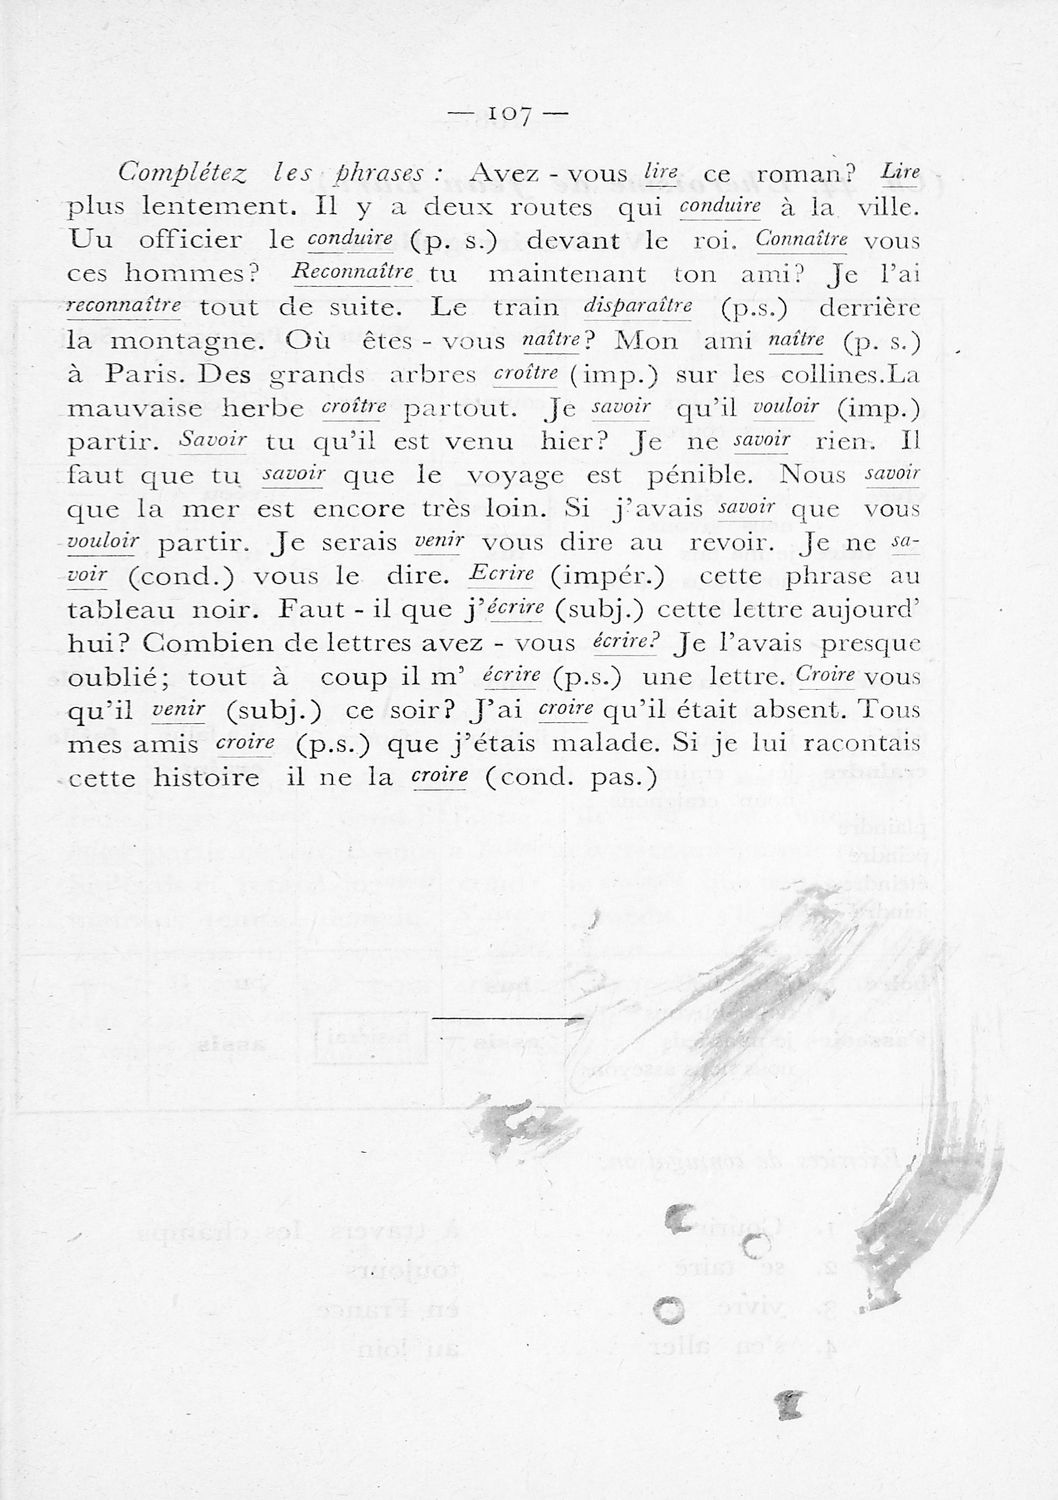 — 107 —
Complétez les phrases : Avez - vous lire ce roman? Lire
plus lentement. Il y a deux routes qui conduire à la ville.
Uu officier le conduire (p. s.) devant le roi. Connaître vous
ces hommes? Reconnaître tu maintenant ton ami? Je l’ai
reconnaître tout de suite. Le train disparaître (p.s.) derrière
la montagne. Où êtes - vous naître? Mon ami naître (p. s.)
à Paris. Des grands arbres croître (imp.) sur les collines.La
mauvaise herbe croître partout. Je savoir qu’il vouloir (imp.)
partir. Savoir tu qu’il est venu hier? Je ne savoir rien. Il
faut que tu savoir que le voyage est pénible. Nous savoir
que la mer est encore très loin. Si j’avais savoir que vous
vouloir partir. Je serais venir vous dire au revoir. Je ne sa-
voir (cond.) vous le dire. Ecrire (impér.) cette phrase au
tableau noir. Faut - il que j’écrire (subj.) cette lettre aujourd’
hui? Combien de lettres avez - vous écrire? Je l’avais presque
oublié; tout à coup il m’ écrire (p.s.) une lettre. Croire vous
qu’il venir (subj.) ce soir? J’ai croire qu’il était absent. Tous
mes amis croire (p.s.) que j’étais malade. Si je lui racontais
cette histoire il ne la croire (cond. pas.)